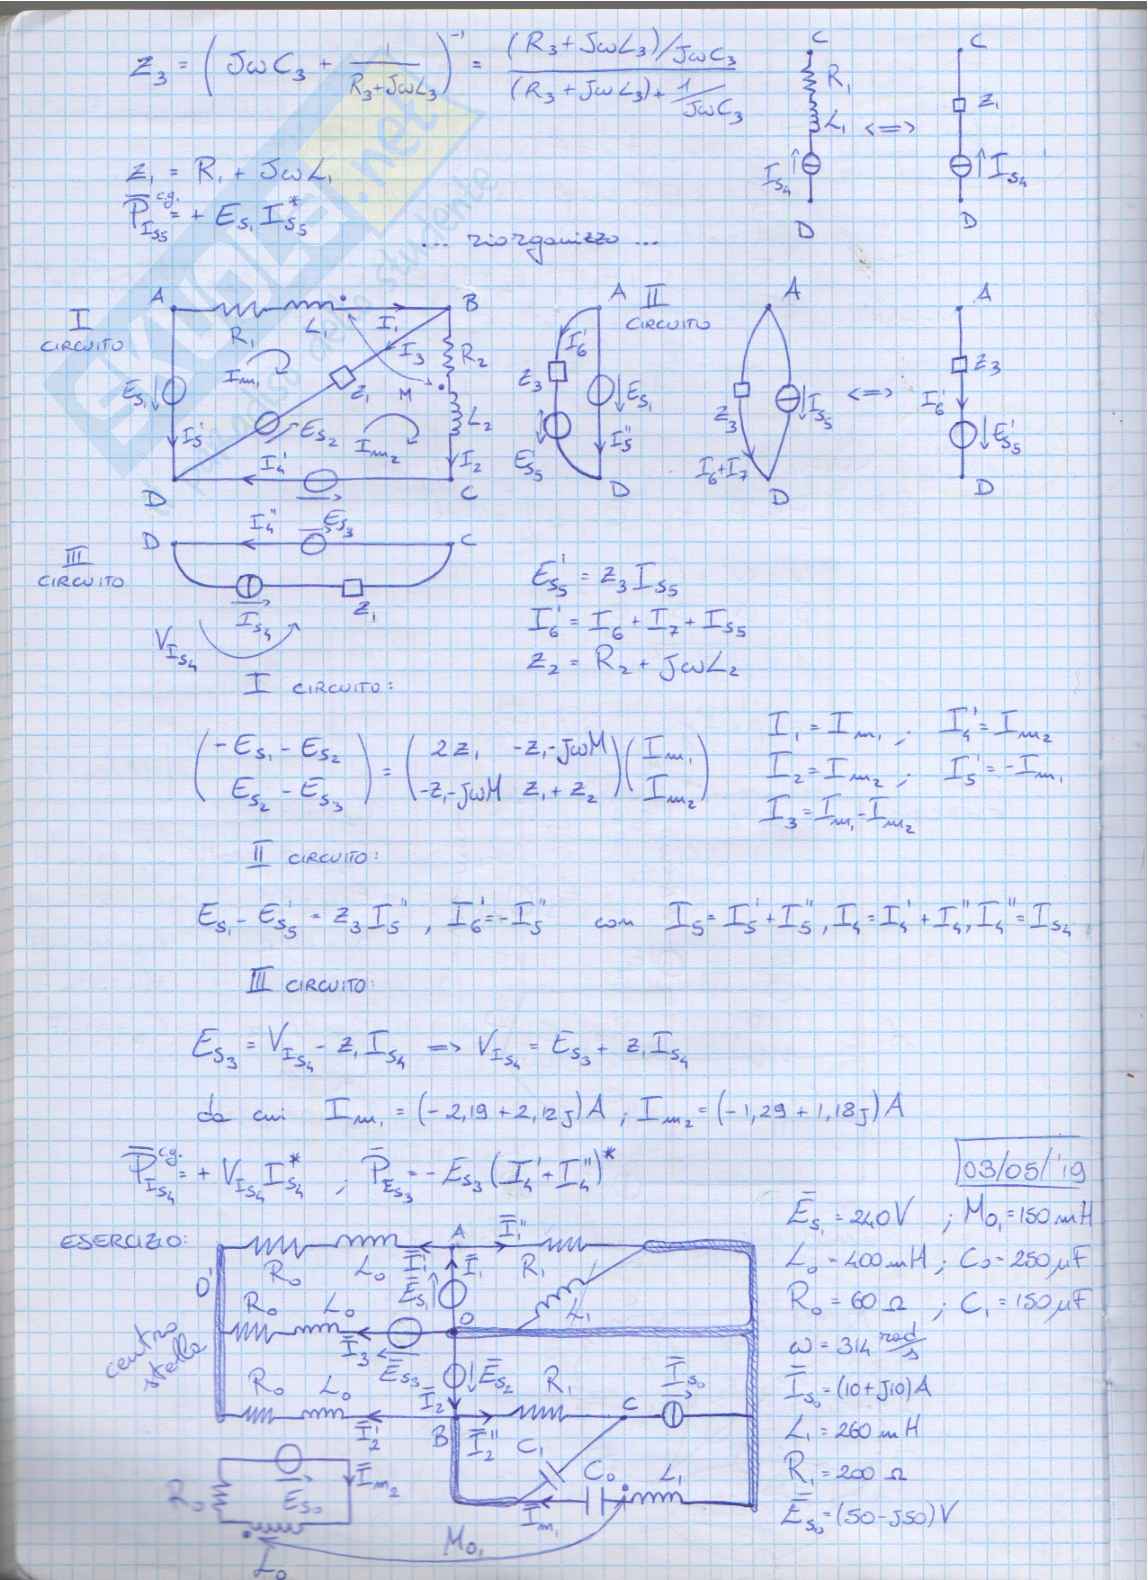 Z₃ = (JωC₃ + 1/(R₃+JωL₃))⁻¹ = ((R₃+JωL₃)/JωC₃)/((R₃+JωL₃)+1/JωC₃)
C
R₁
L₁
I_S₄
D
<=>
C
Z₁
I_S₄
D
Z₁ = R₁ + JωL₁
P̿_IS₅^cg. = + E_S₁ I_S₅*
... riorganizzo ...
I CIRCUITO
A R₁ L₁ I₁ B
I_m₁ I₃ R₂
E_S₁ Z₁ M L₂
E_S₂ I_m₂
I₅' I₄' I₂
D E_S₃ C
II CIRCUITO
A I₆' Z₃ E_S₁ E_S₅' I₅'' D
A Z₃ I_S₅ I₆+I₇ D
<=>
A Z₃ I₆' E_S₅' D
III CIRCUITO
D I₄'' C
I_S₄ Z₁
V_IS₄
E_S₅' = Z₃ I_S₅
I₆' = I₆ + I₇ + I_S₅
Z₂ = R₂ + JωL₂
I CIRCUITO:
(-E_S₁ - E_S₂ ; E_S₂ - E_S₃) = (2Z₁ -Z₁-JωM ; -Z₁-JωM Z₁+Z₂) (I_m₁ ; I_m₂)
I₁ = I_m₁ ; I₄' = I_m₂
I₂ = I_m₂ ; I₅' = -I_m₁
I₃ = I_m₁ - I_m₂
II CIRCUITO:
E_S₁ - E_S₅' = Z₃ I₅'' , I₆' = -I₅'' con I₅ = I₅' + I₅'' , I₄ = I₄' + I₄'' , I₄'' = I_S₄
III CIRCUITO:
E_S₃ = V_IS₄ - Z₁ I_S₄ => V_IS₄ = E_S₃ + Z₁ I_S₄
da cui I_m₁ = (-2,19 + 2,12J)A ; I_m₂ = (-1,29 + 1,18J)A
P̿_IS₄^cg. = + V_IS₄ I_S₄* ; P̄_ES₃ = - E_S₃ (I₄' + I₄'')*
03/05/'19
ESERCIZIO:
O' R₀ L₀ Ī₁' A Ī₁'' R₁
Ē_S₁ Ī₁ L₁
centro stella
R₀ L₀ Ī₃ Ē_S₃ O
Ē_S₂ R₁ Ī_S₀
R₀ L₀ Ī₂ C
Ī₂' B Ī₂'' C₁ C₀ L₁
Ī_m₁
R₀ E_S₀ Ī_m₂
L₀ M₀₁
Ē_S₁ = 240V ; M₀₁ = 150mH
L₀ = 400mH ; C₀ = 250μF
R₀ = 60Ω ; C₁ = 150μF
ω = 314 rad/s
Ī_S₀ = (10+J10)A
L₁ = 260mH
R₁ = 200Ω
Ē_S₀ = (50-J50)V